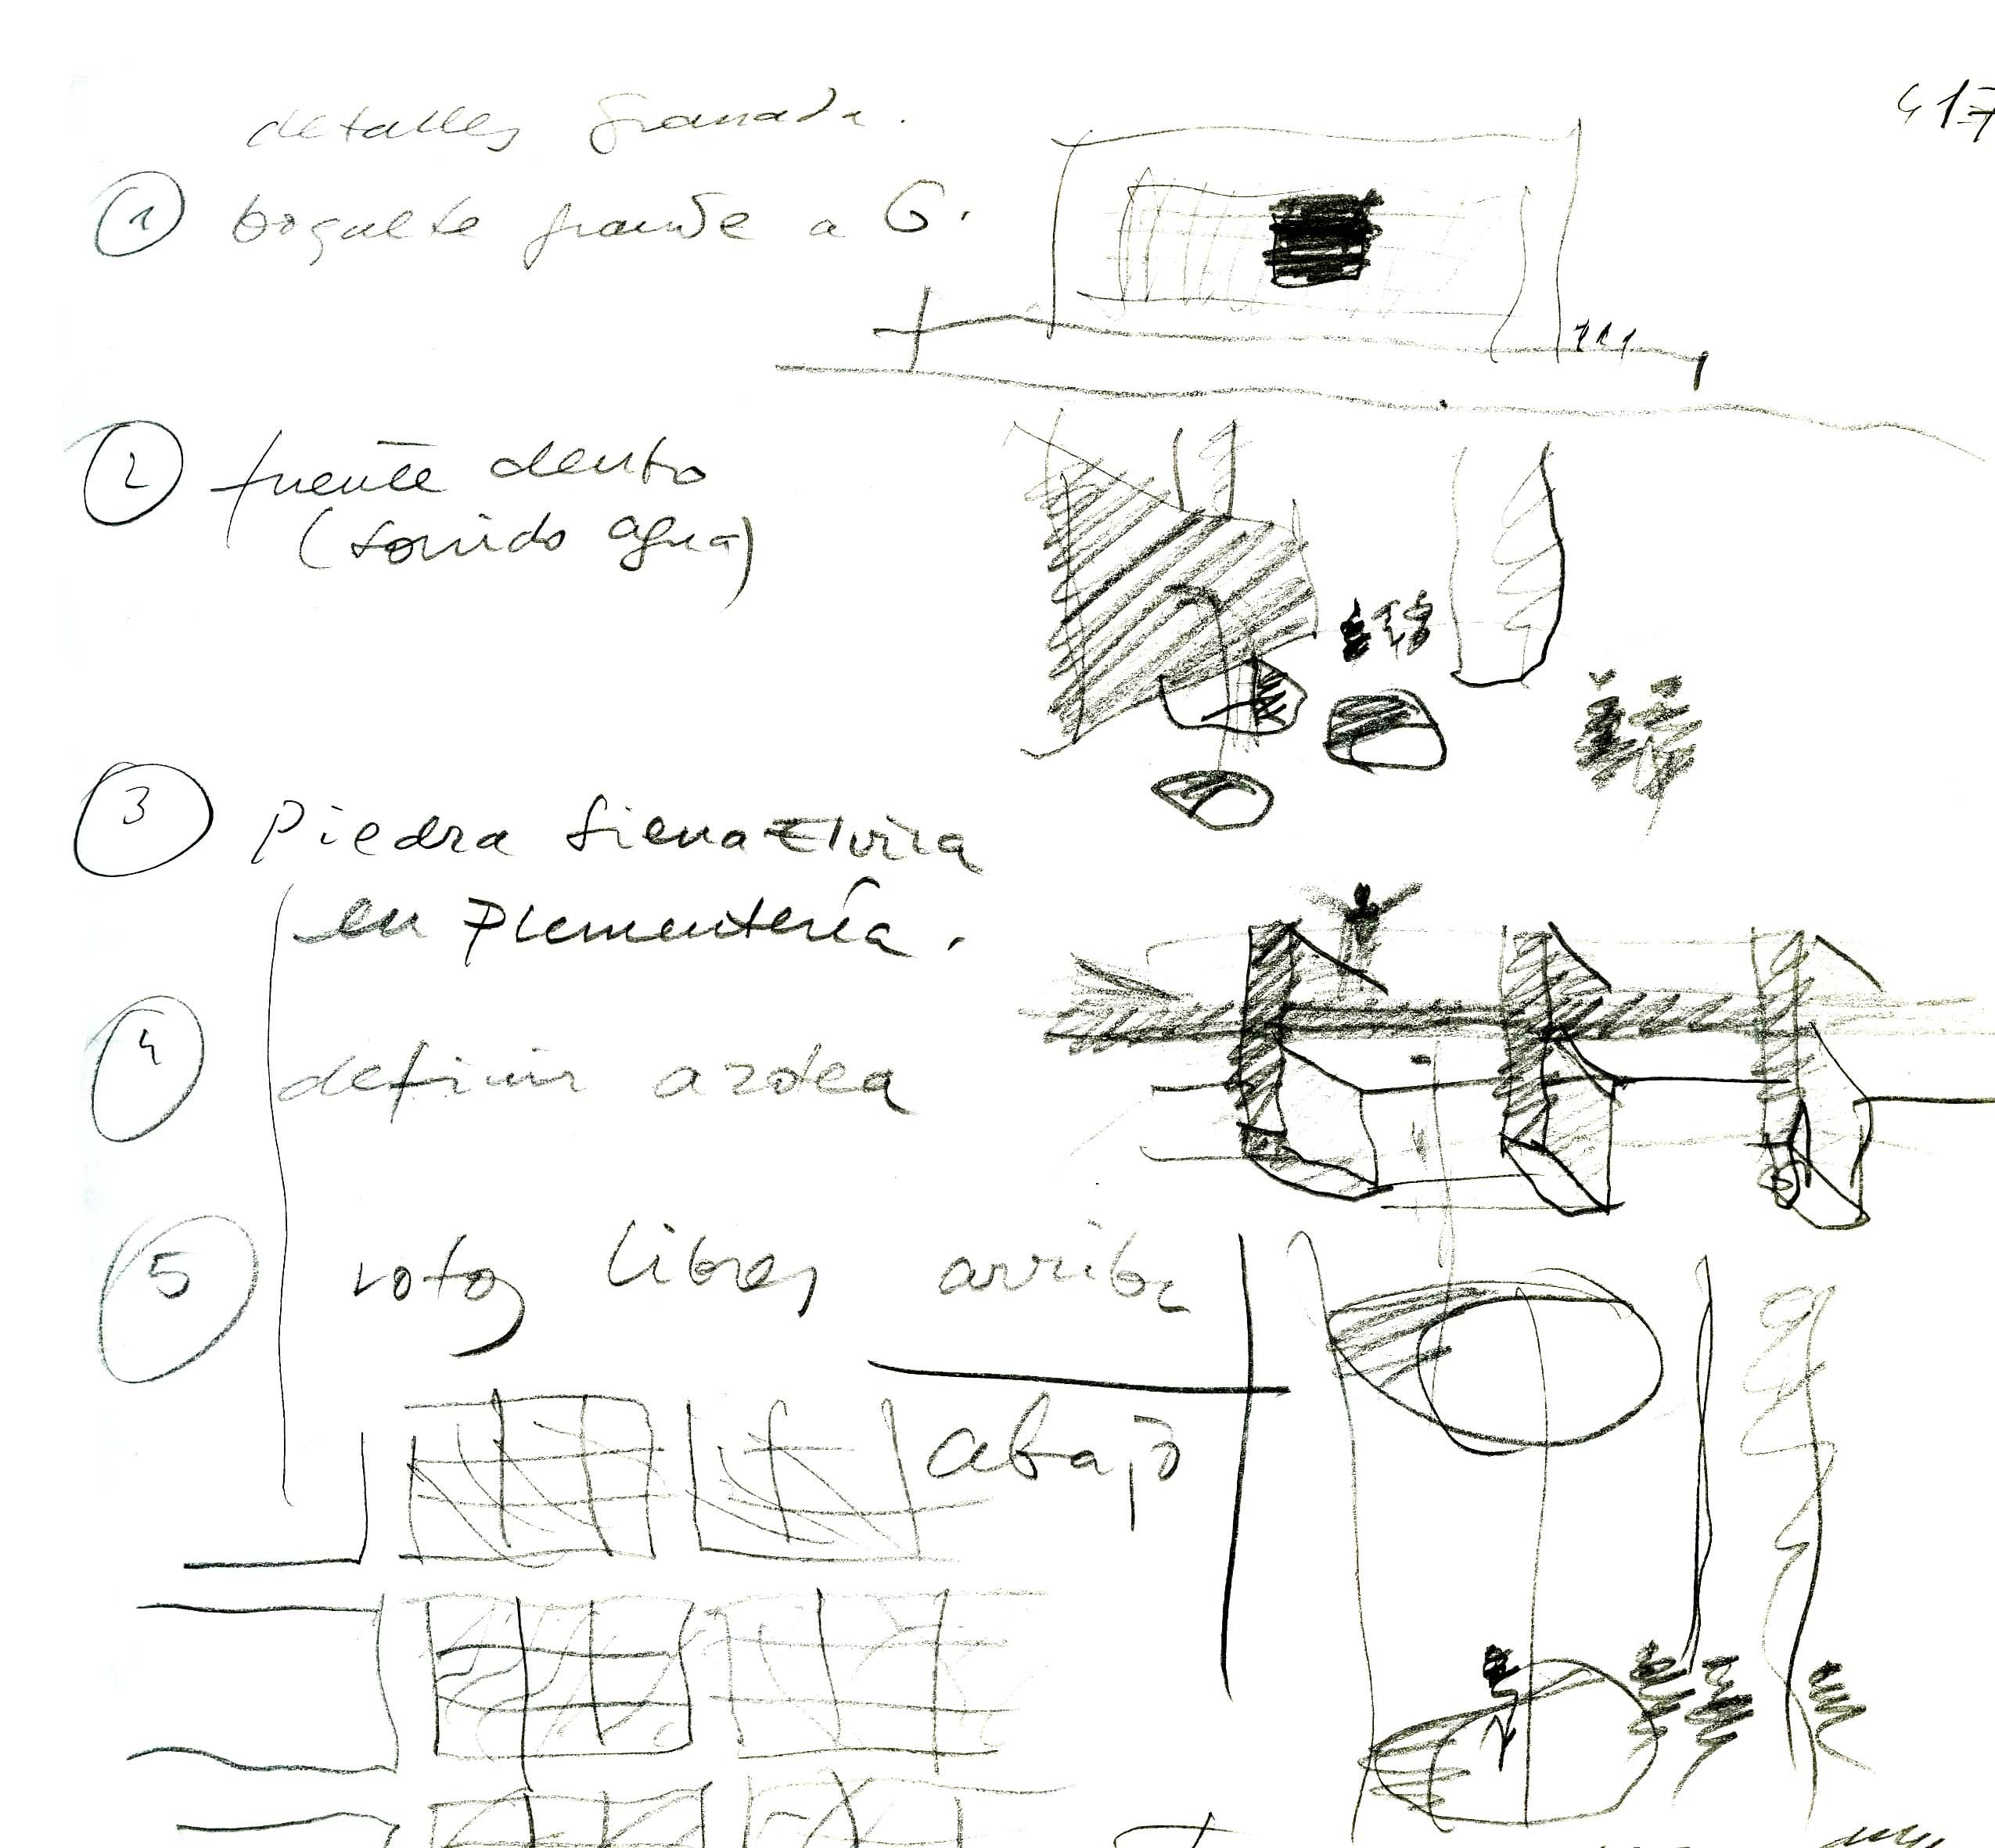 detalles Granada.
417
1 boquete grande a G.
2 fuente dentro
(sonido agua)
3 Piedra Sierra Elvira
en Plementería.
4 definir azotea
5 rotos libres arriba
abajo